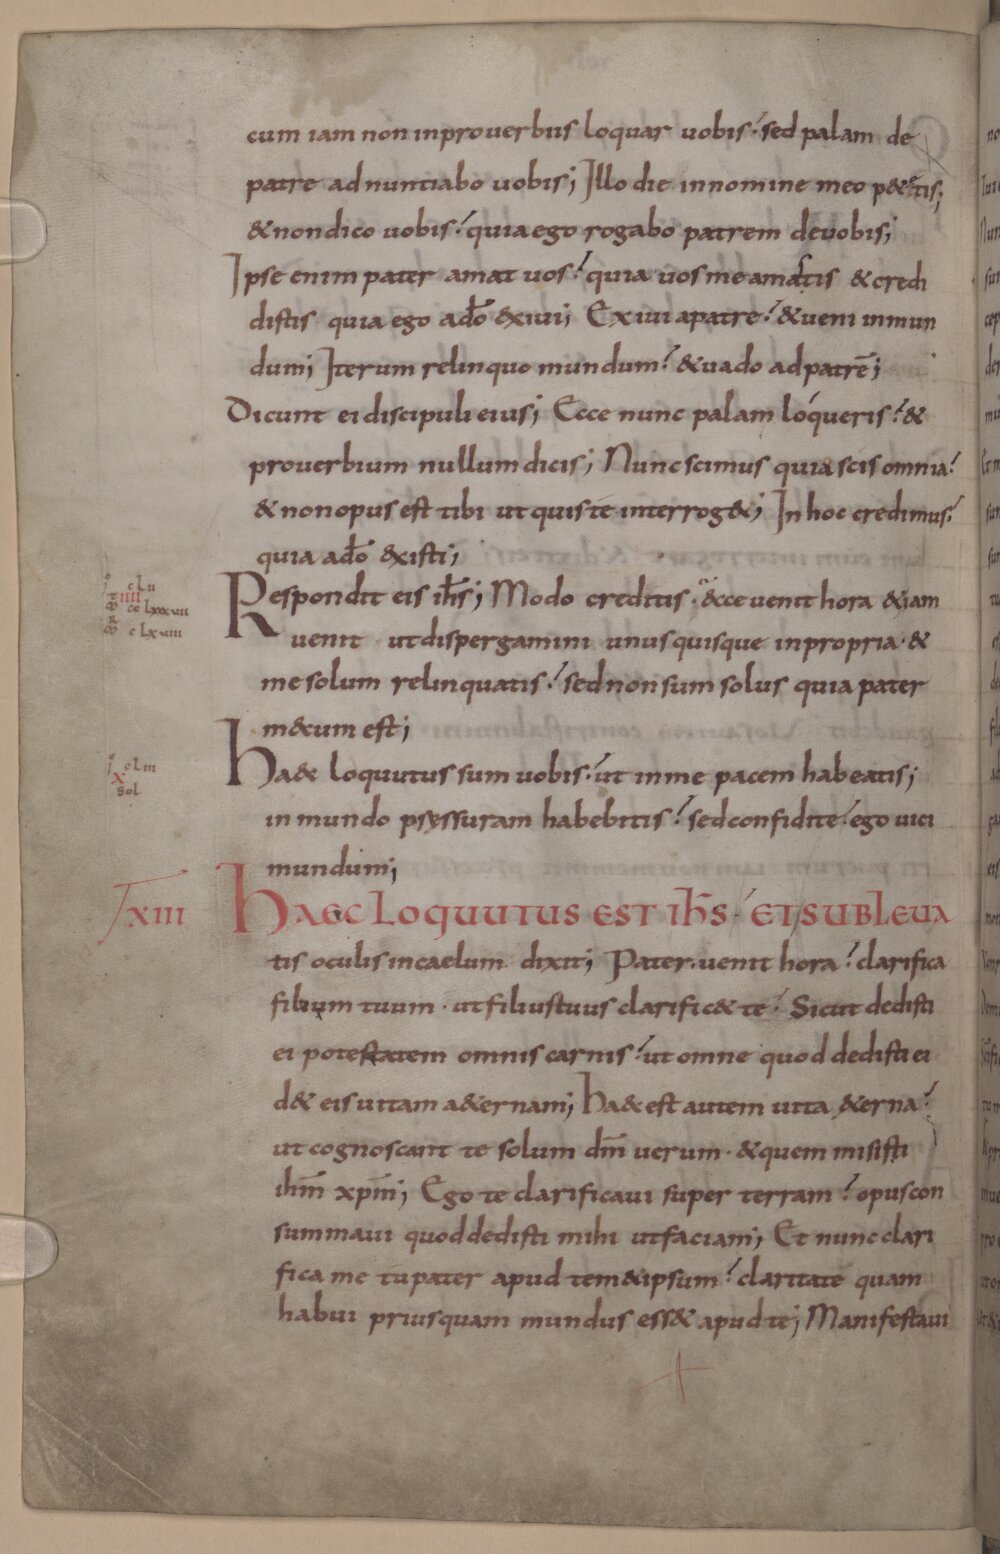 cum iam non inprouerbiis loquar uobis. sed palam de
patre adnuntiabo uobis; Illo die innomine meo p&etis;
& nondico uobis. quia ego rogabo patrem deuobis;
Ipse enim pater amat uos. quia uos me amastis & credi
distis quia ego ad̄o exiui; Exiui apatre. & ueni inmun
dum; Iterum relinquo mundum. & uado ad patrē;
Dicunt ei discipuli eius; Ecce nunc palam loqueris. &
prouerbium nullum dicis; Nunc scimus quia scis omnia.
& non opus est tibi ut quis te interrog&; In hoc credimus.
quia ad̄o existi;
Respondit eis ih̄s; Modo creditis. &cce uenit hora & iam
uenit ut dispergamini unusquisque inpropria. &
me solum relinquatis. sed non sum solus quia pater
m&cum est;
Ha&c loquutus sum uobis. ut inme pacem habeatis;
in mundo pressuram habebitis. sed confidite. ego uici
mundum;
XIII HAEC LOQUUTUS EST IH̄S. ET SUBLEUA
tis oculis incaelum dixit; Pater. uenit hora. clarifica
filium tuum. ut filius tuus clarific& te. Sicut dedisti
ei potestatem omnis carnis. ut omne quod dedisti ei
d& eis uitam a&ernam; Ha&c est autem uita &erna.
ut cognoscant te solum dm̄ uerum. & quem misisti
ihm̄ xpm̄; Ego te clarificaui super terram. opus con
summaui quod dedisti mihi ut faciam; Et nunc clari
fica me tu pater apud tem&ipsum. claritate quam
habui priusquam mundus ess& apud te; Manifestaui